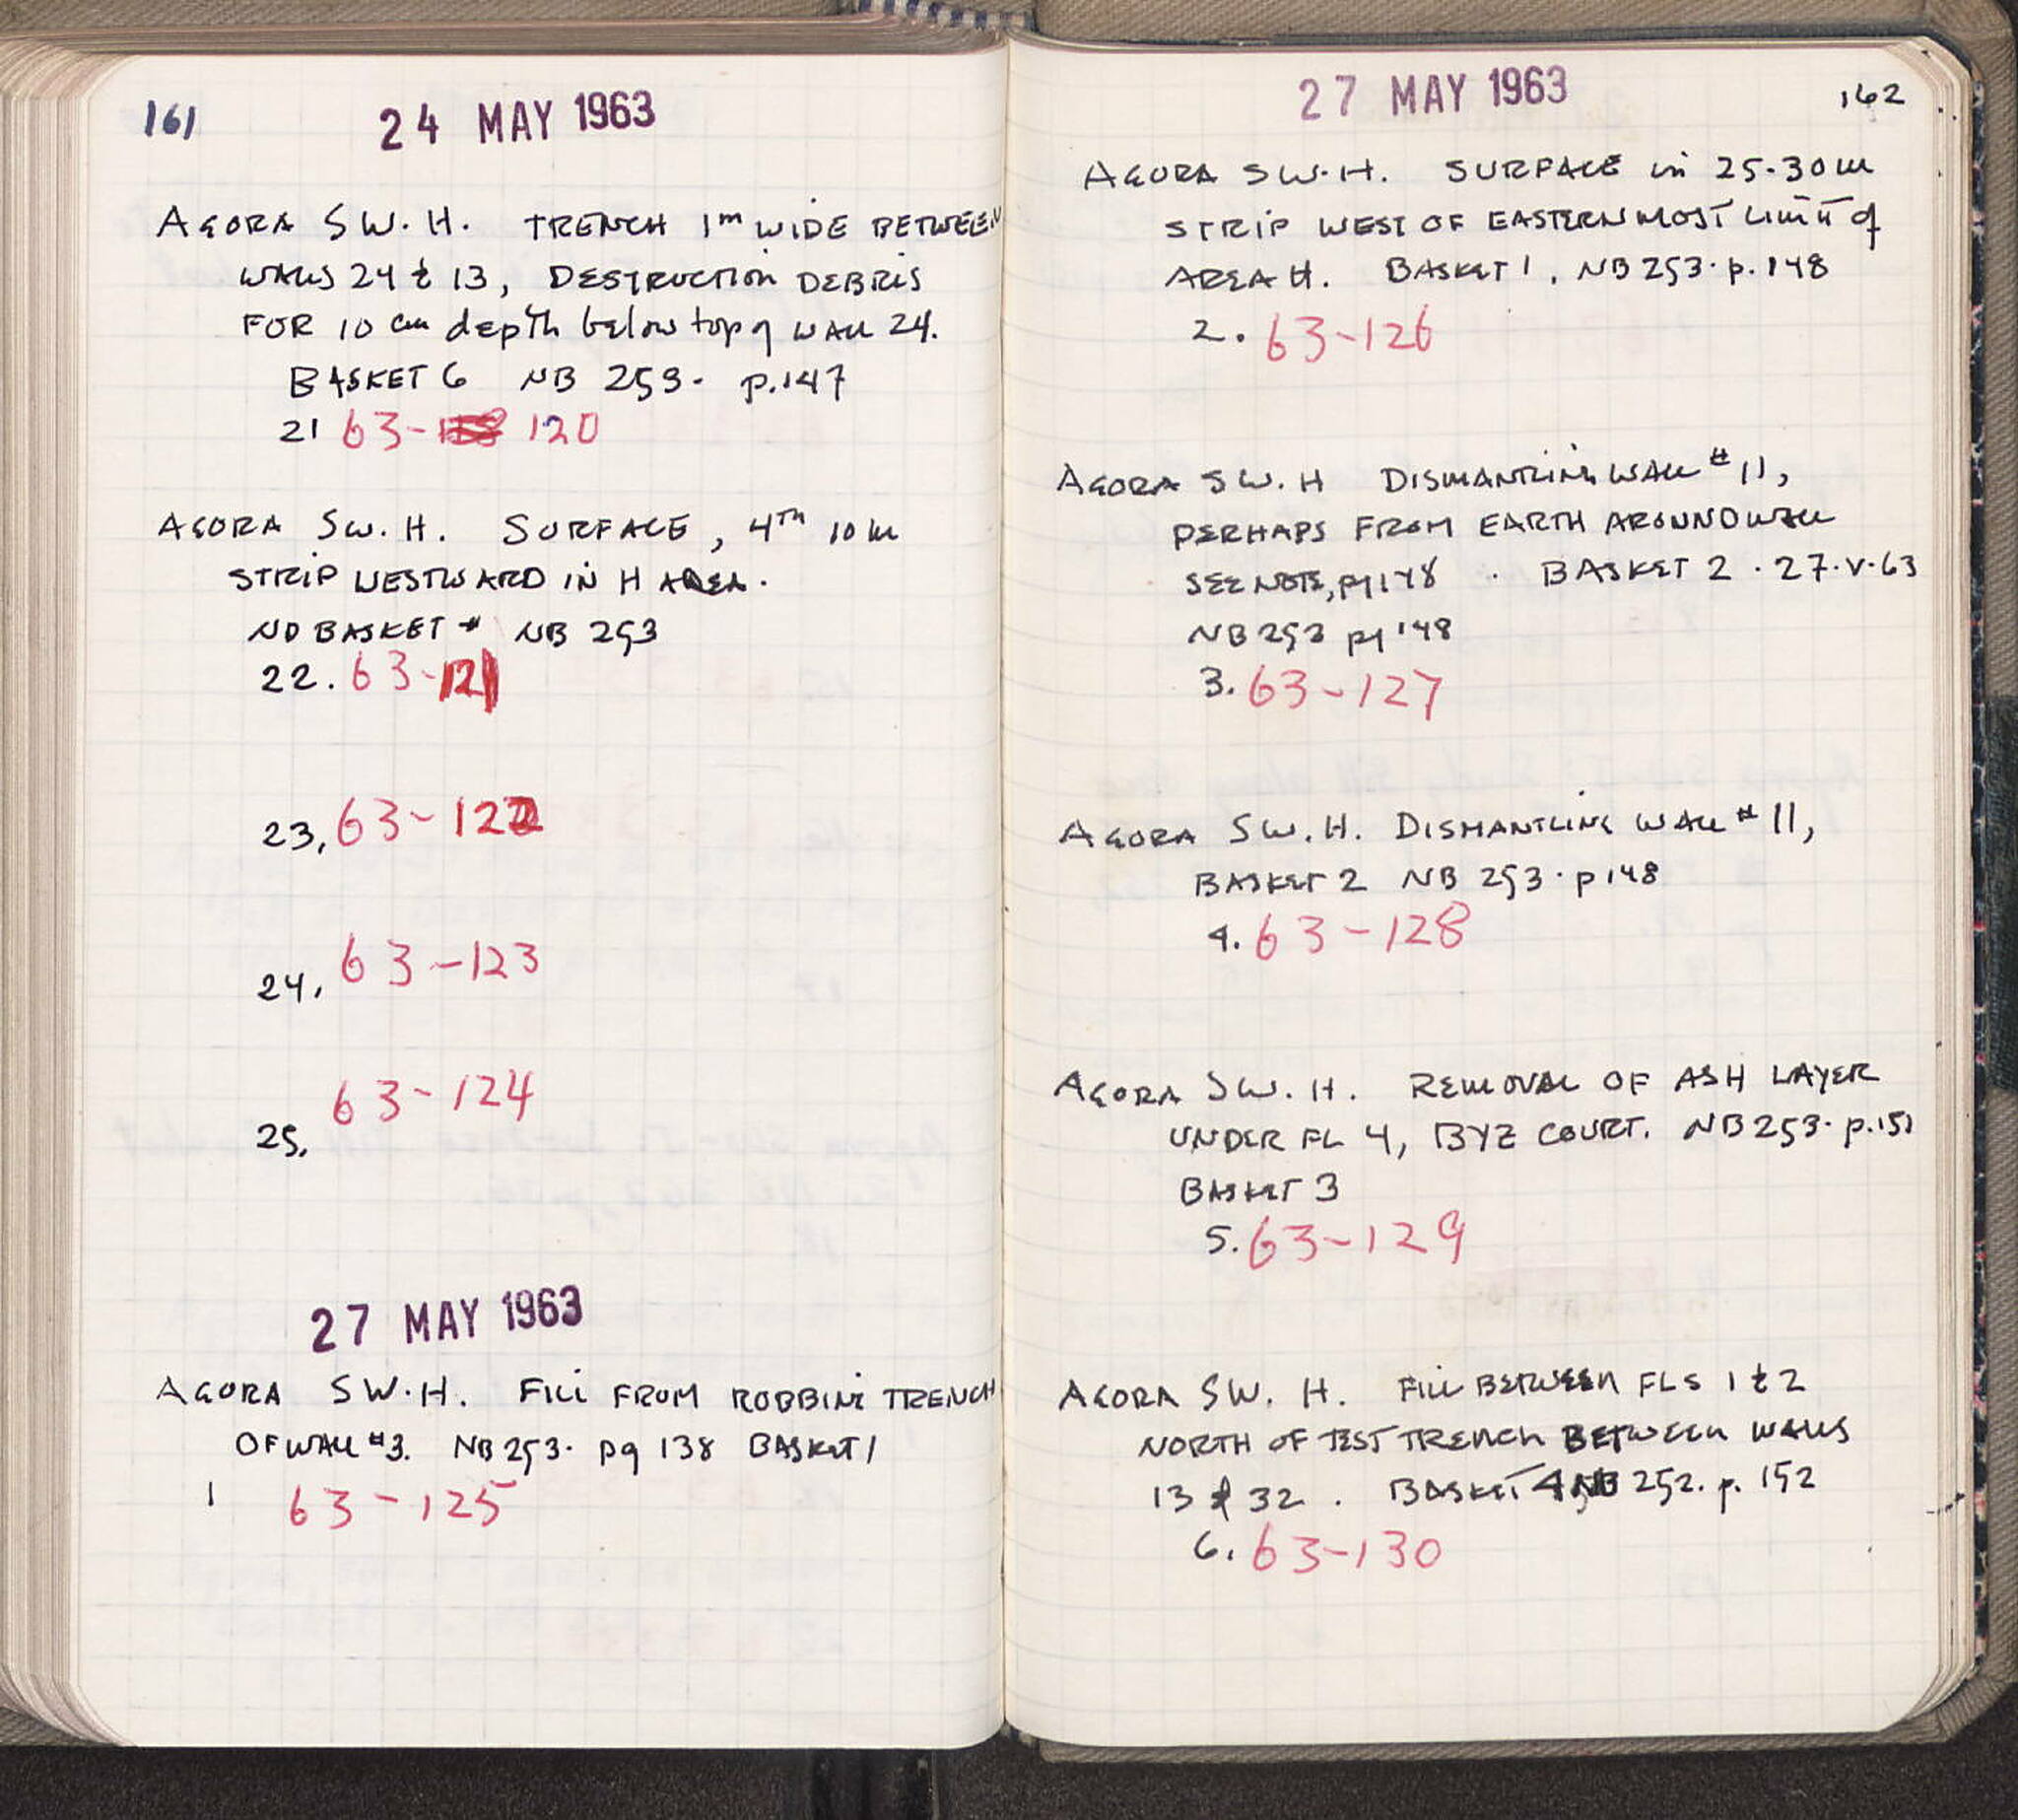 161
24 MAY 1963
AGORA SW.H. TRENCH 1m WIDE BETWEEN
WALLS 24 & 13, DESTRUCTION DEBRIS
FOR 10 cm depth below top of WALL 24.
BASKET 6 NB 253. p.147
21 63- 120
AGORA SW.H. SURFACE, 4TH 10 m
STRIP WESTWARD IN H AREA.
NO BASKET # NB 253
22. 63-121
23, 63-122
24, 63-123
25, 63-124
27 MAY 1963
AGORA SW.H. FILL FROM ROBBING TRENCH
OF WALL #3. NB 253. pg 138 BASKET 1
1 63-125
27 MAY 1963
162
AGORA SW.H. SURFACE in 25-30 m
STRIP WEST OF EASTERNMOST LIMIT of
AREA H. BASKET 1, NB 253. p. 148
2. 63-126
AGORA SW.H DISMANTLING WALL #11,
PERHAPS FROM EARTH AROUND WALL
SEE NOTE, pg 148 . BASKET 2 . 27.V.63
NB 253 pg 148
3. 63-127
AGORA SW.H. DISMANTLING WALL #11,
BASKET 2 NB 253. p 148
4. 63-128
AGORA SW.H. REMOVAL OF ASH LAYER
UNDER FL 4, BYZ COURT. NB 253. p.151
BASKET 3
5. 63-129
AGORA SW.H. FILL BETWEEN FLS 1 & 2
NORTH OF TEST TRENCH BETWEEN WALLS
13 & 32 . BASKET 4 NB 252. p. 152
6. 63-130